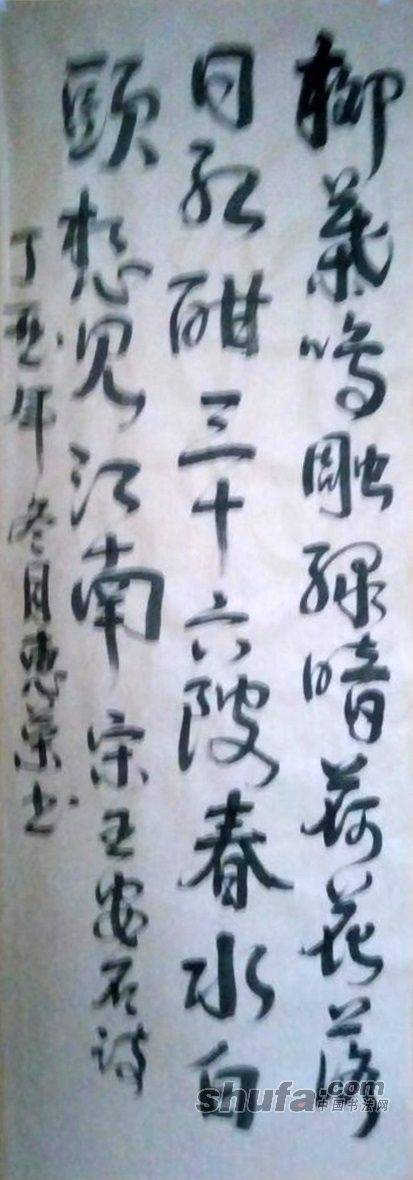 柳葉鸣蜩绿暗荷花落
日红酣三十六陂春水白
頭想见江南 宋王安石诗
丁亥年冬月惠荣书
shufa.com
中国书法网